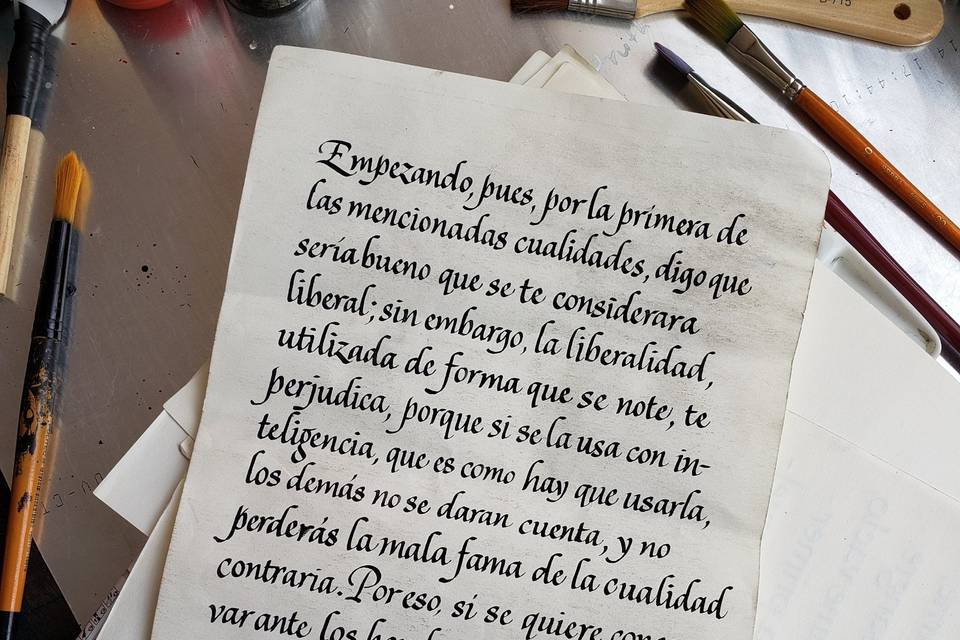 Empezando, pues, por la primera de
las mencionadas cualidades, digo que
sería bueno que se te considerara
liberal; sin embargo, la liberalidad,
utilizada de forma que se note, te
perjudica, porque si se la usa con in-
teligencia, que es como hay que usarla,
los demás no se daran cuenta, y no
perderás la mala fama de la cualidad
contraria. Por eso, si se quiere
var ante los